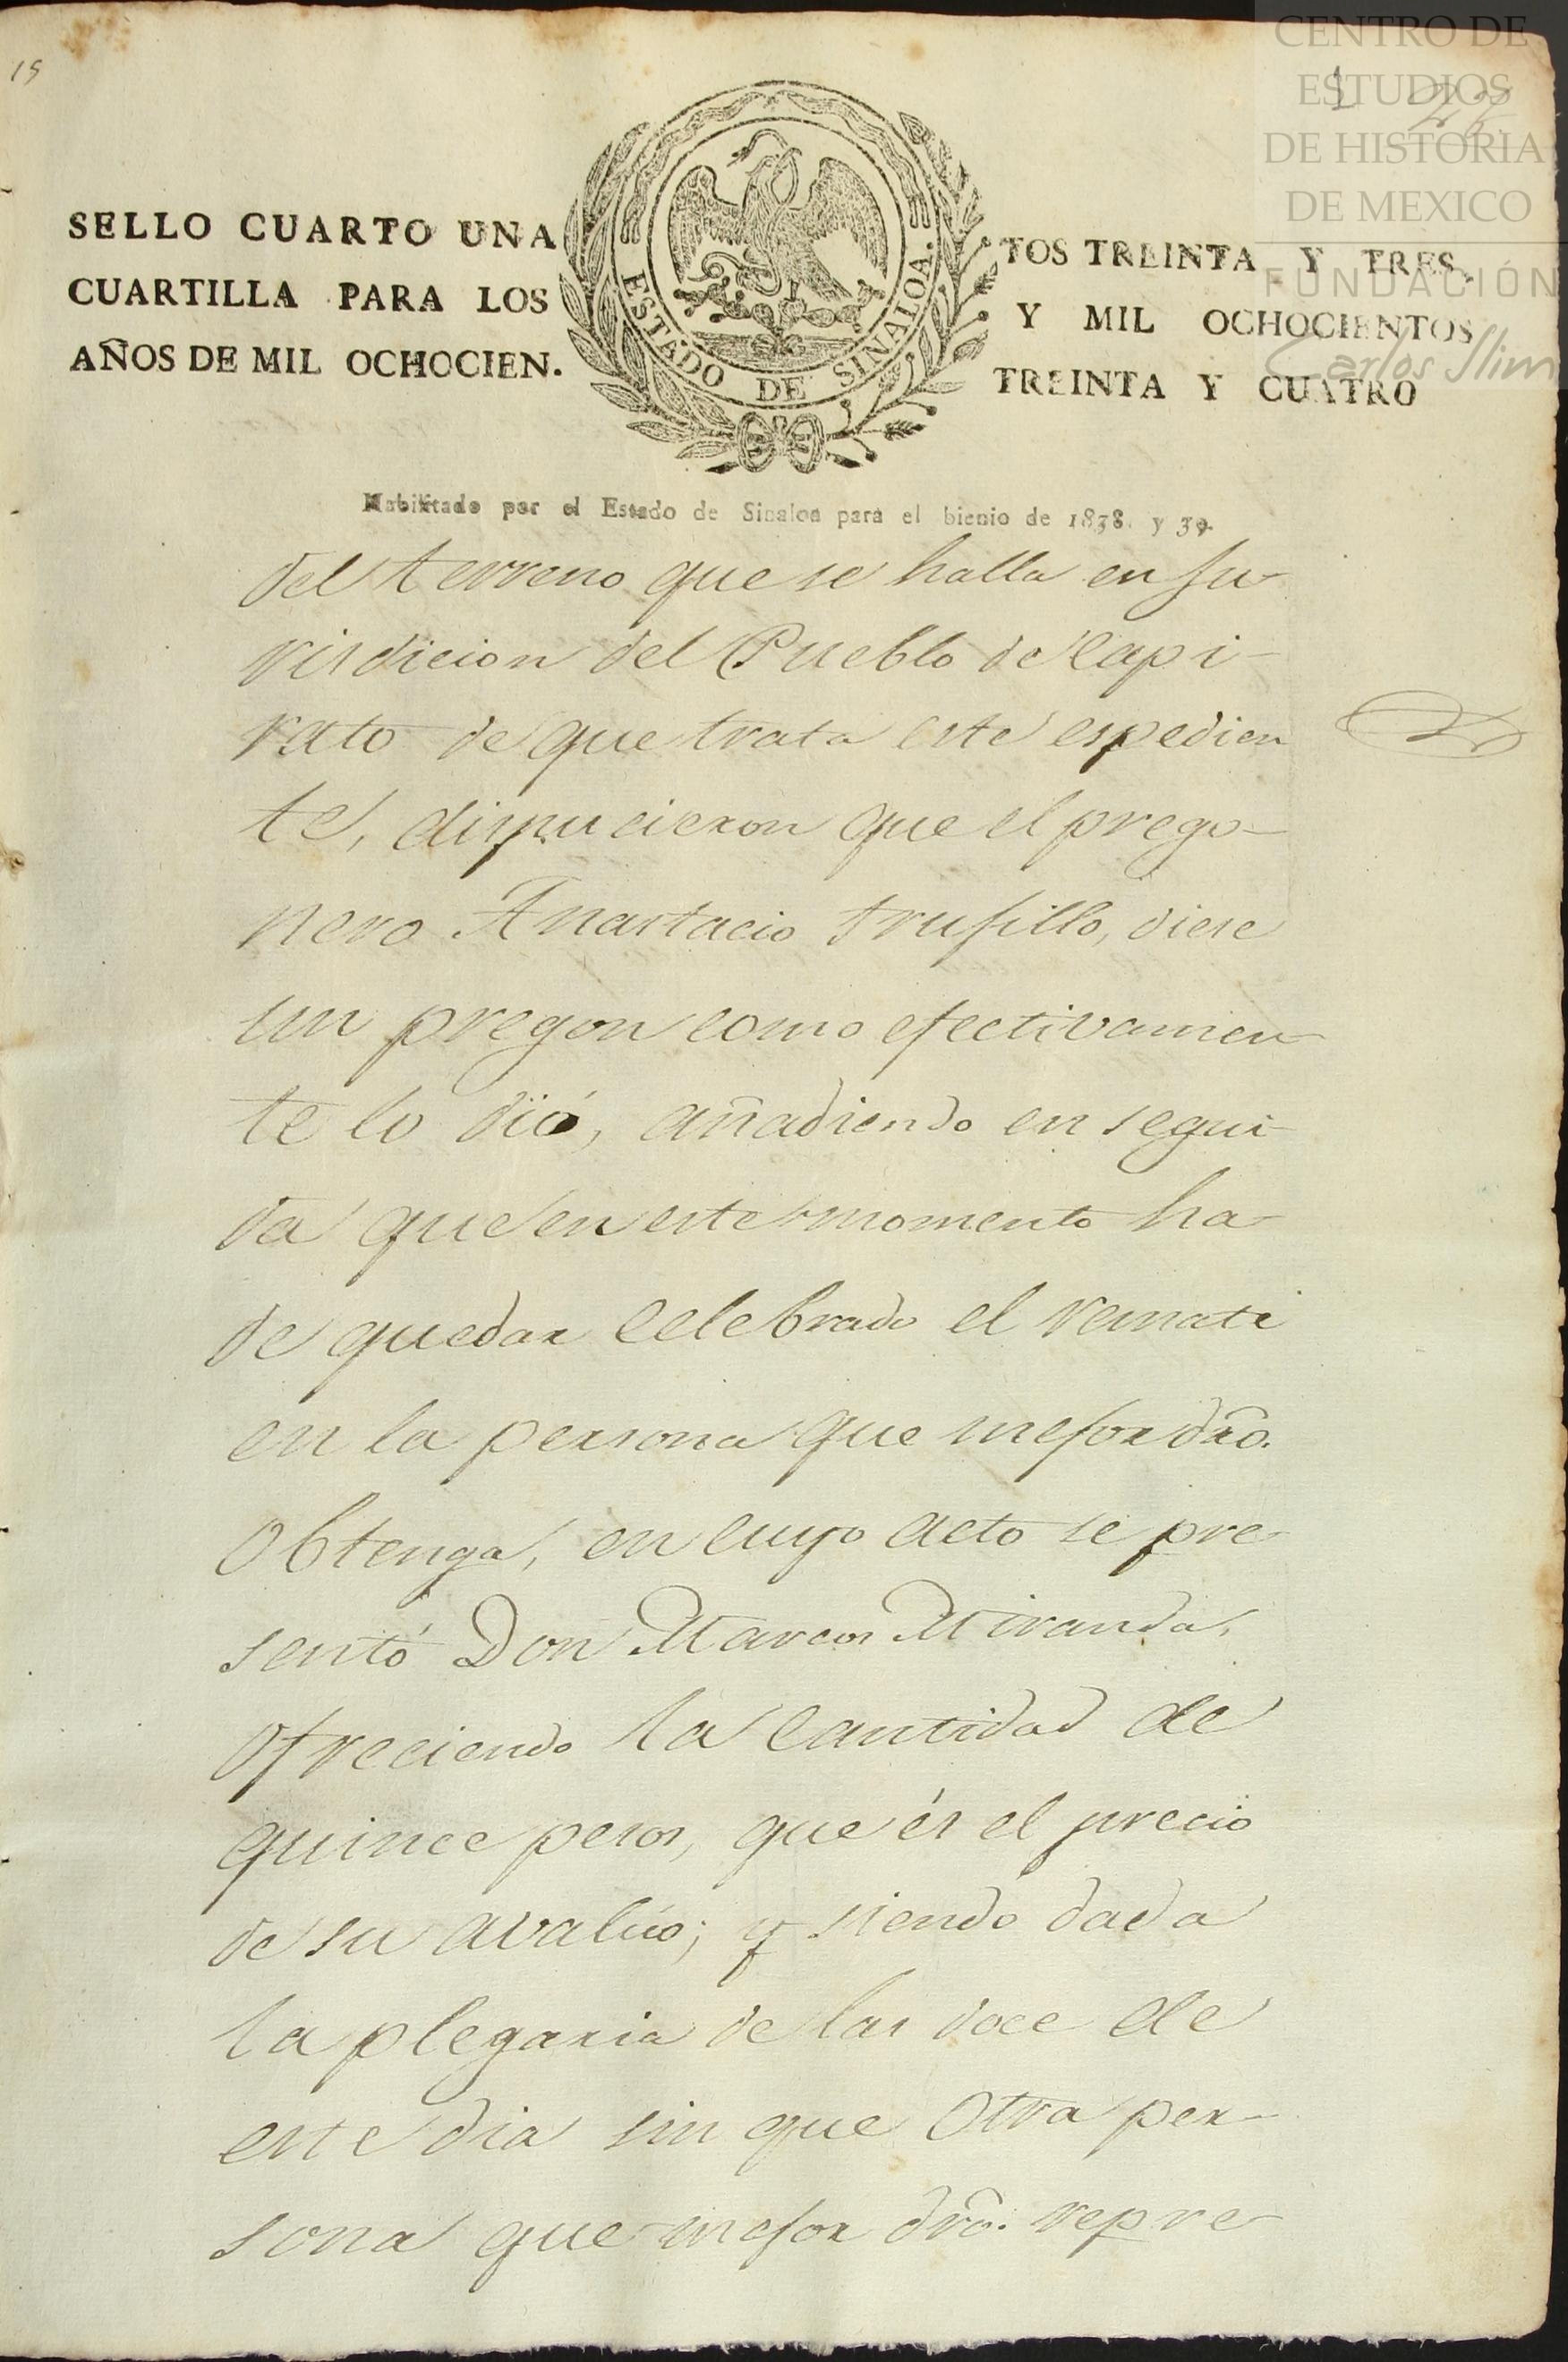 15
CENTRO DE
ESTUDIOS
DE HISTORIA
DE MEXICO
FUNDACIÓN
Carlos Slim
SELLO CUARTO UNA
CUARTILLA PARA LOS
AÑOS DE MIL OCHOCIEN.
ESTADO DE SINALOA.
TOS TREINTA Y TRES,
Y MIL OCHOCIENTOS
TREINTA Y CUATRO
Habilitado por el Estado de Sinaloa para el bienio de 1838. y 39.
del terreno que se halla en Ju-
risdicion del Pueblo de Capi-
rato de que trata este espedien
te, dispucieron que el prego-
nero Anastacio Trujillo, diese
un pregon como efectivamen-
te lo dió, añadiendo en segui-
da que en este momento ha-
de quedar celebrado el remate
en la persona que mejor dro.
obtenga, en cuyo acto se pre-
sentó Don Marcos Miranda,
ofreciendo la cantidad de
quince pesos, que és el precio
de su avalúo; y siendo dada
la plegaria de las doce de
este dia sin que otra per-
sona que mejor dro. repre-